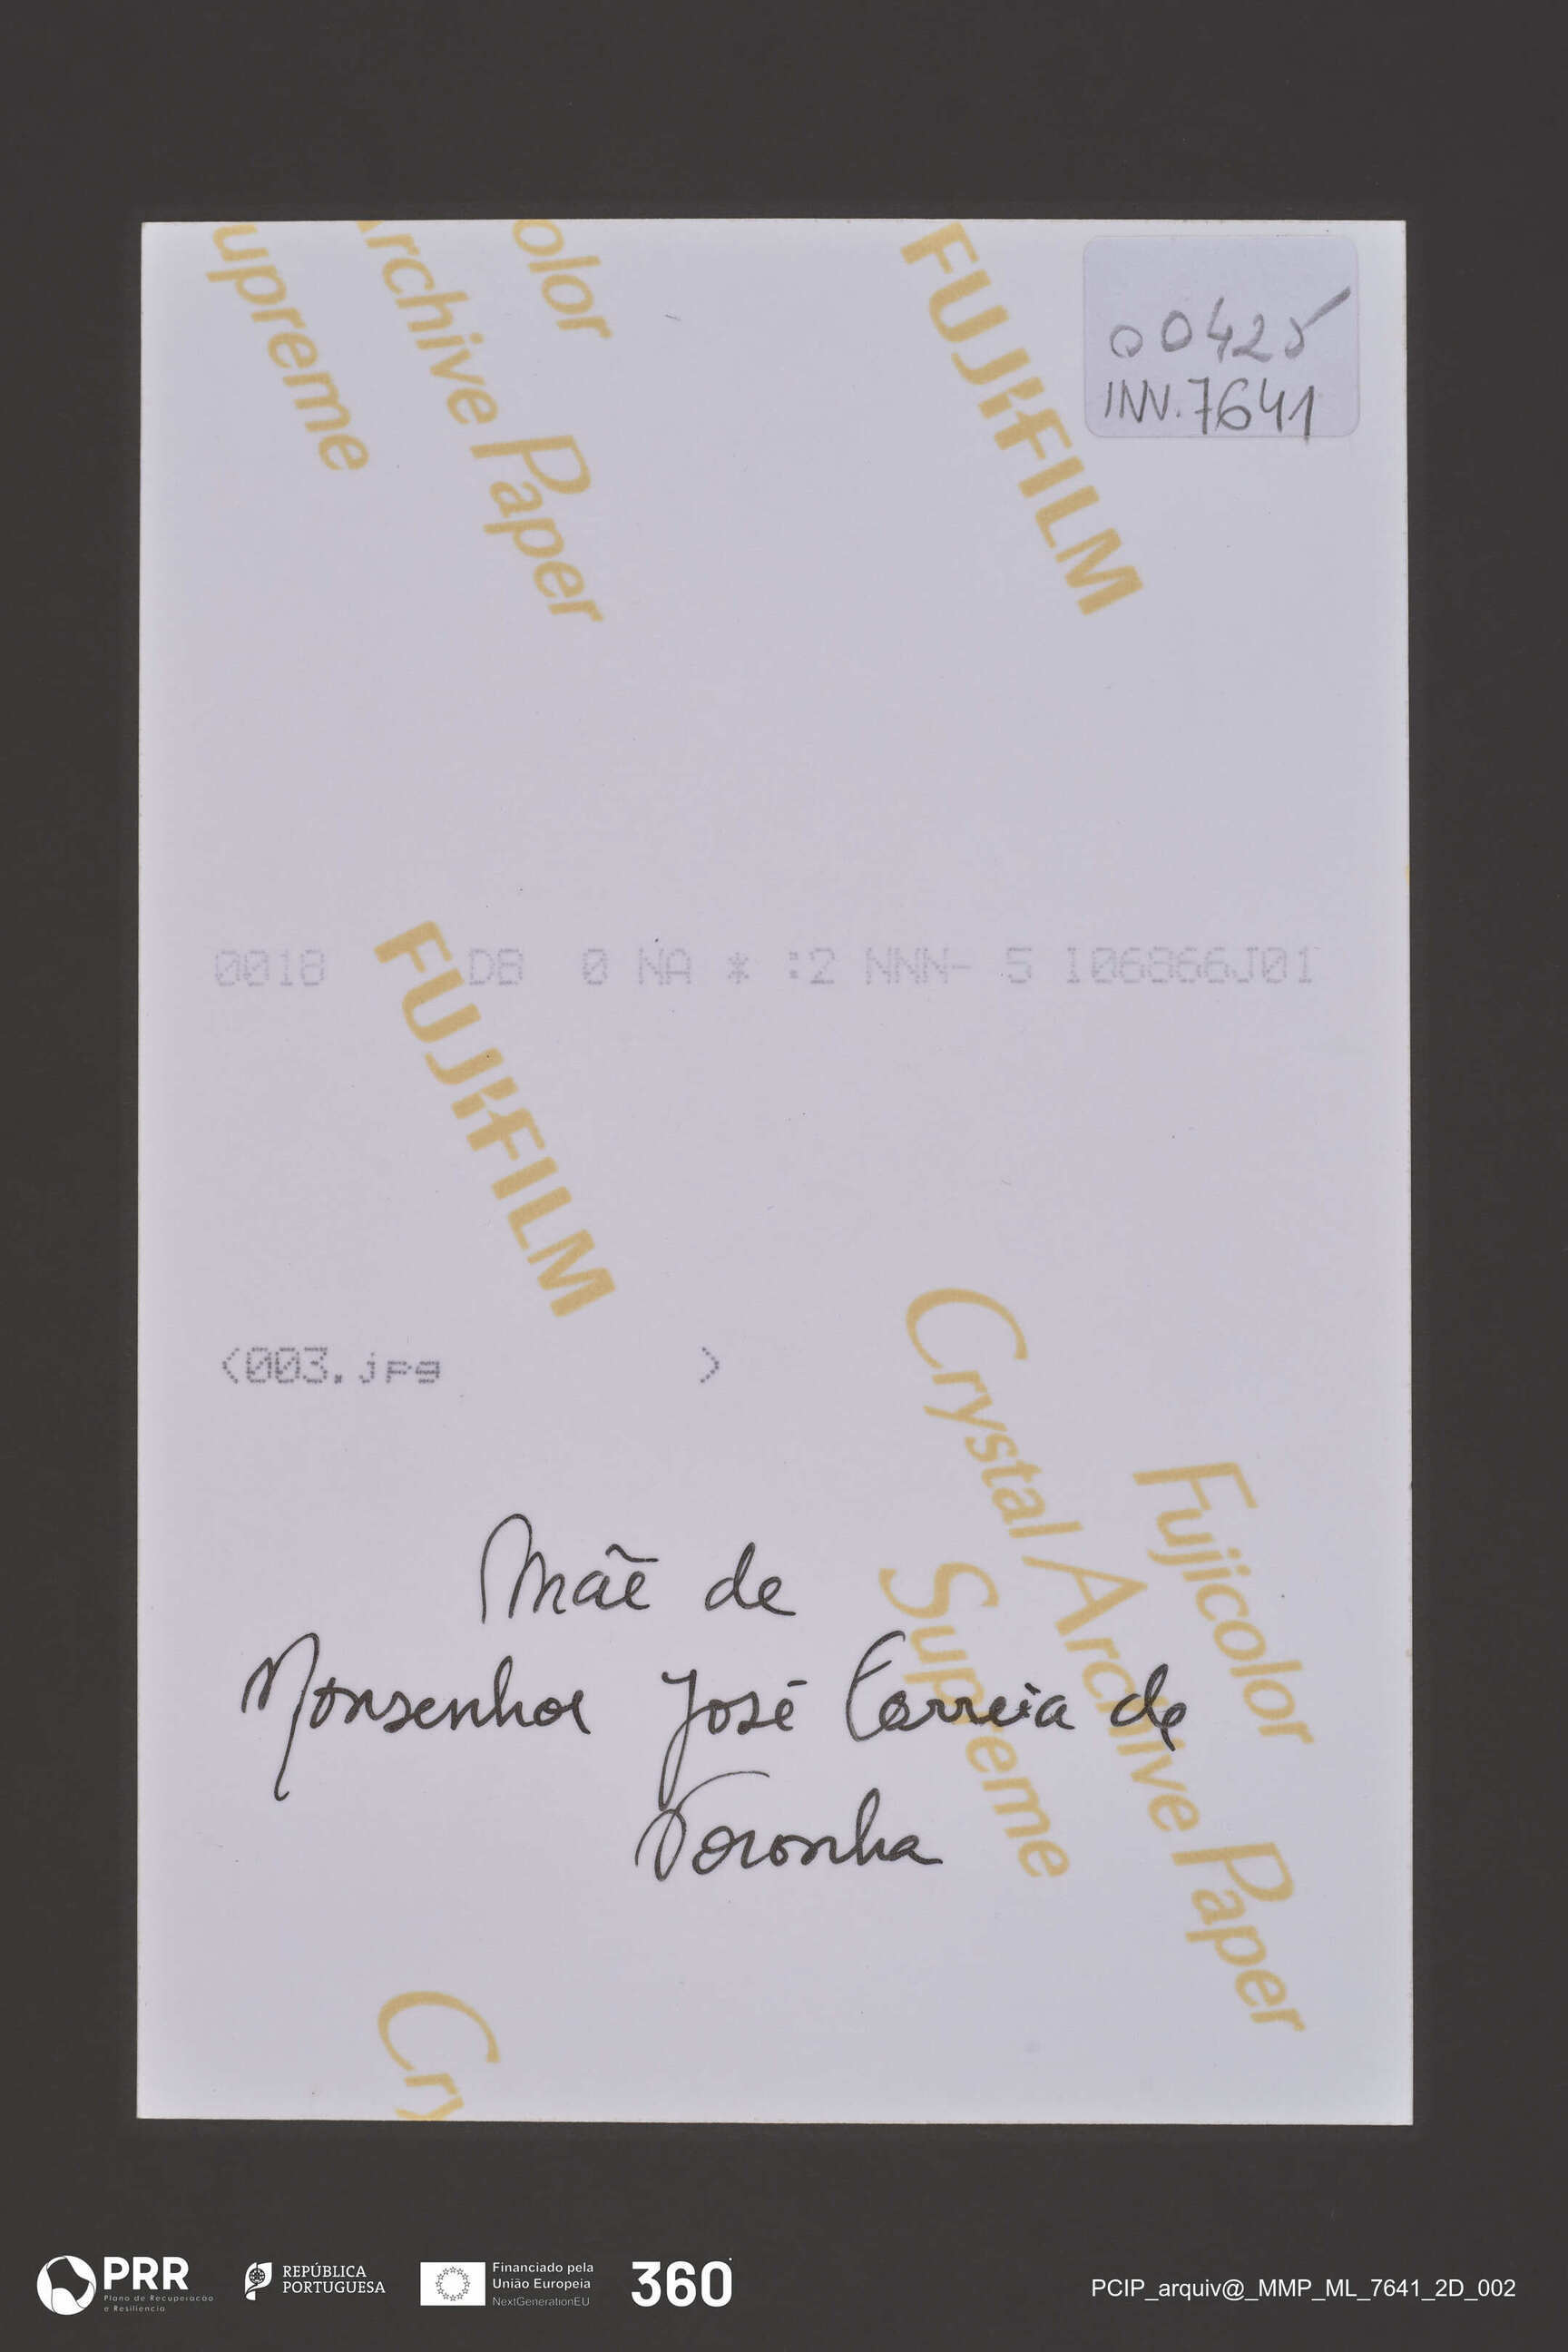 upreme
rchive Paper
olor
FUJIFILM
00425
INV. 7641
0018 DB 0 NA * :2 NNN- 5 106866J01
FUJIFILM
<003.jpg >
Crystal Archive Paper
Fujicolor
Supreme
Mãe de
Monsenhor José Correia de
Noronha
Cry
PRR
Plano de Recuperação
e Resiliência
REPÚBLICA
PORTUGUESA
Financiado pela
União Europeia
NextGenerationEU
360
PCIP_arquiv@_MMP_ML_7641_2D_002